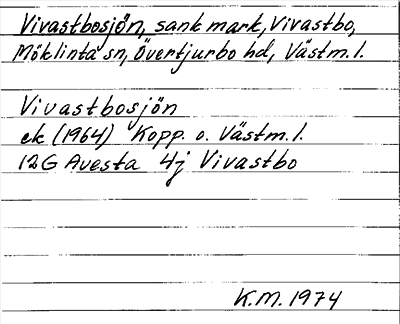 Vivastbosjön, sank mark, Vivastbo,
Möklinta sn, Övertjurbo hd, Västm. l.
Vivastbosjön
ek (1964) Kopp. o. Västm. l.
12G Avesta 4j Vivastbo
K.M. 1974